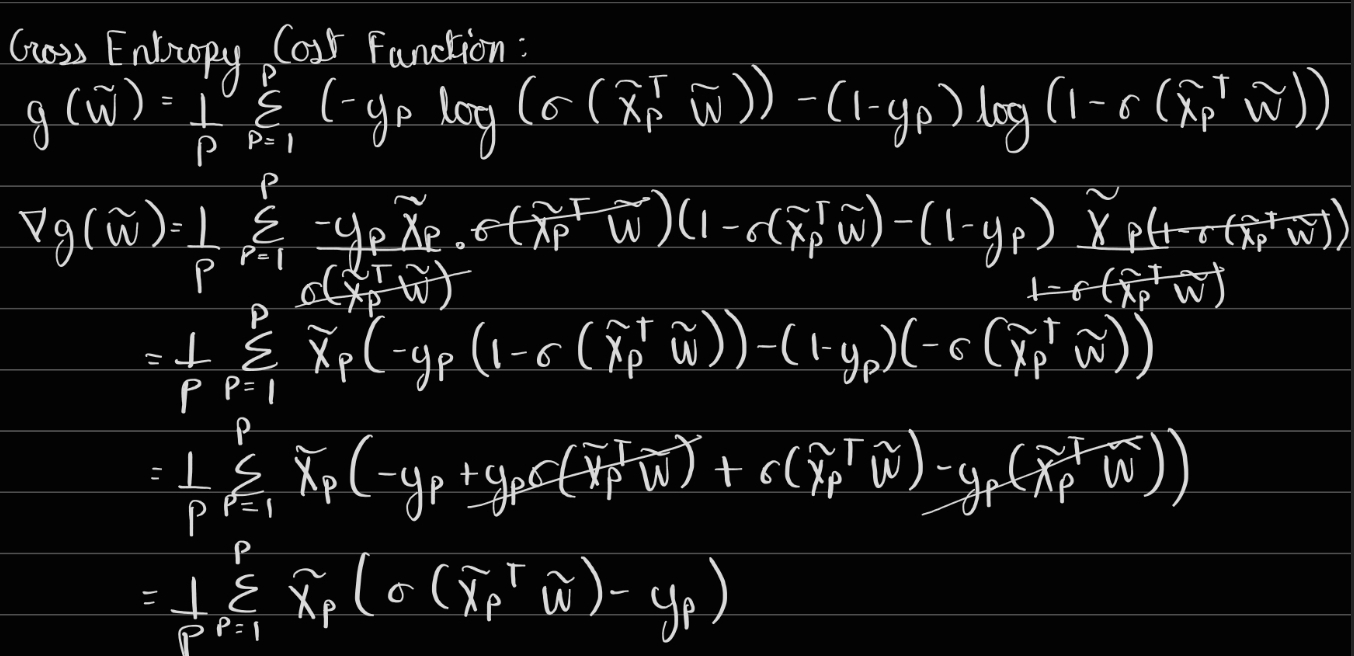 Cross Entropy Cost Function:
g(w̃) = 1/P Σ_{P=1}^{P} (-y_P log(σ(x̃_P^T w̃)) - (1-y_P) log(1-σ(x̃_P^T w̃))
∇g(w̃) = 1/P Σ_{P=1}^{P} -y_P x̃_P/σ(x̃_P^T w̃) · σ(x̃_P^T w̃)(1-σ(x̃_P^T w̃) - (1-y_P) x̃_P(1-σ(x̃_P^T w̃))/1-σ(x̃_P^T w̃)
= 1/P Σ_{P=1}^{P} x̃_P(-y_P(1-σ(x̃_P^T w̃)) - (1-y_P)(-σ(x̃_P^T w̃))
= 1/P Σ_{P=1}^{P} x̃_P(-y_P + y_P σ(x̃_P^T w̃) + σ(x̃_P^T w̃) - y_P(x̃_P^T w̃))
= 1/P Σ_{P=1}^{P} x̃_P(σ(x̃_P^T w̃) - y_P)